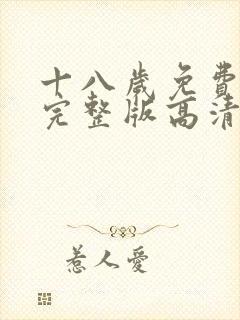 十八歲免費
完整版高清
惹人愛